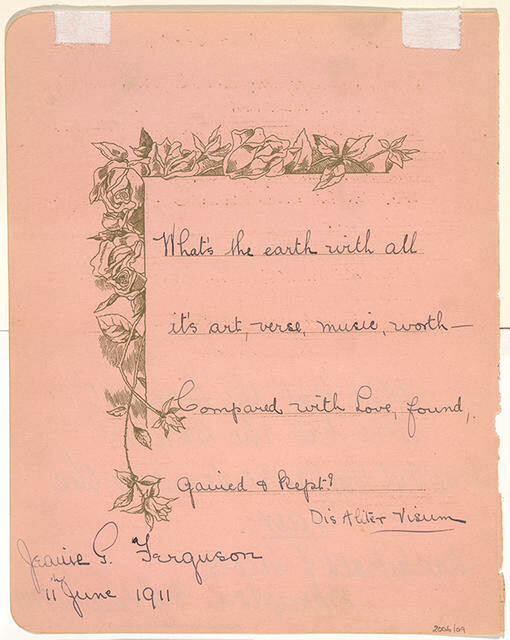 What's the earth with all
it's art, verse, music, worth—
Compared with Love, found,
gained & kept?
Dis Aliter Visum
Jeanie G. Ferguson
11th June 1911
2006/09